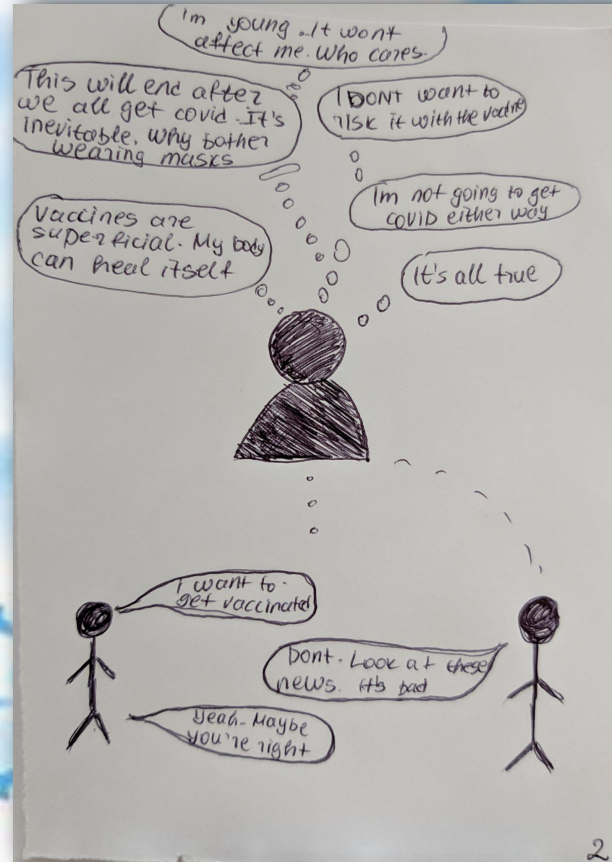 I'm young. It wont
affect me. Who cares.
This will end after
we all get covid. It's
inevitable. Why bother
wearing masks
I DONT want to
risk it with the vaccine
Im not going to get
COVID either way
Vaccines are
superficial. My body
can heal itself
It's all true
I want to
get vaccinated
Dont. Look at these
news. It's bad
Yeah. Maybe
you're right
2